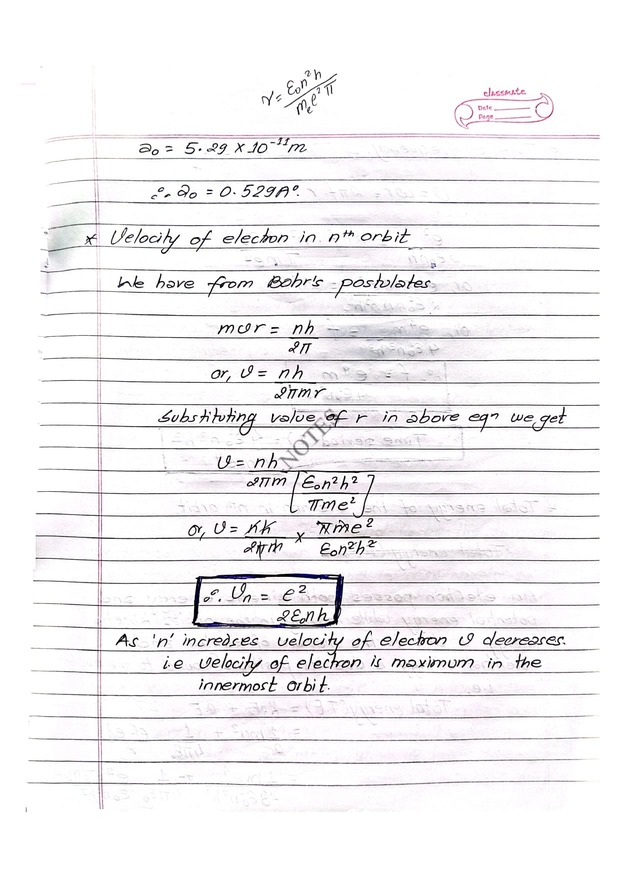 r = ε₀n²h / mₑe²π
classmate
Date
Page
a₀ = 5.29 × 10⁻¹¹ m
∴ a₀ = 0.529A°.
* Velocity of electron in nᵗʰ orbit
We have from Bohr's postulates
mvr = nh / 2π
or, v = nh / 2πmr
Substituting value of r in above eqⁿ we get
v = nh / 2πm [ε₀n²h² / πme²]
or, v = nh / 2πm × πme² / ε₀n²h²
∴ vₙ = e² / 2ε₀nh
As 'n' increases velocity of electron v decreases.
i.e velocity of electron is maximum in the
innermost orbit.
NOTES